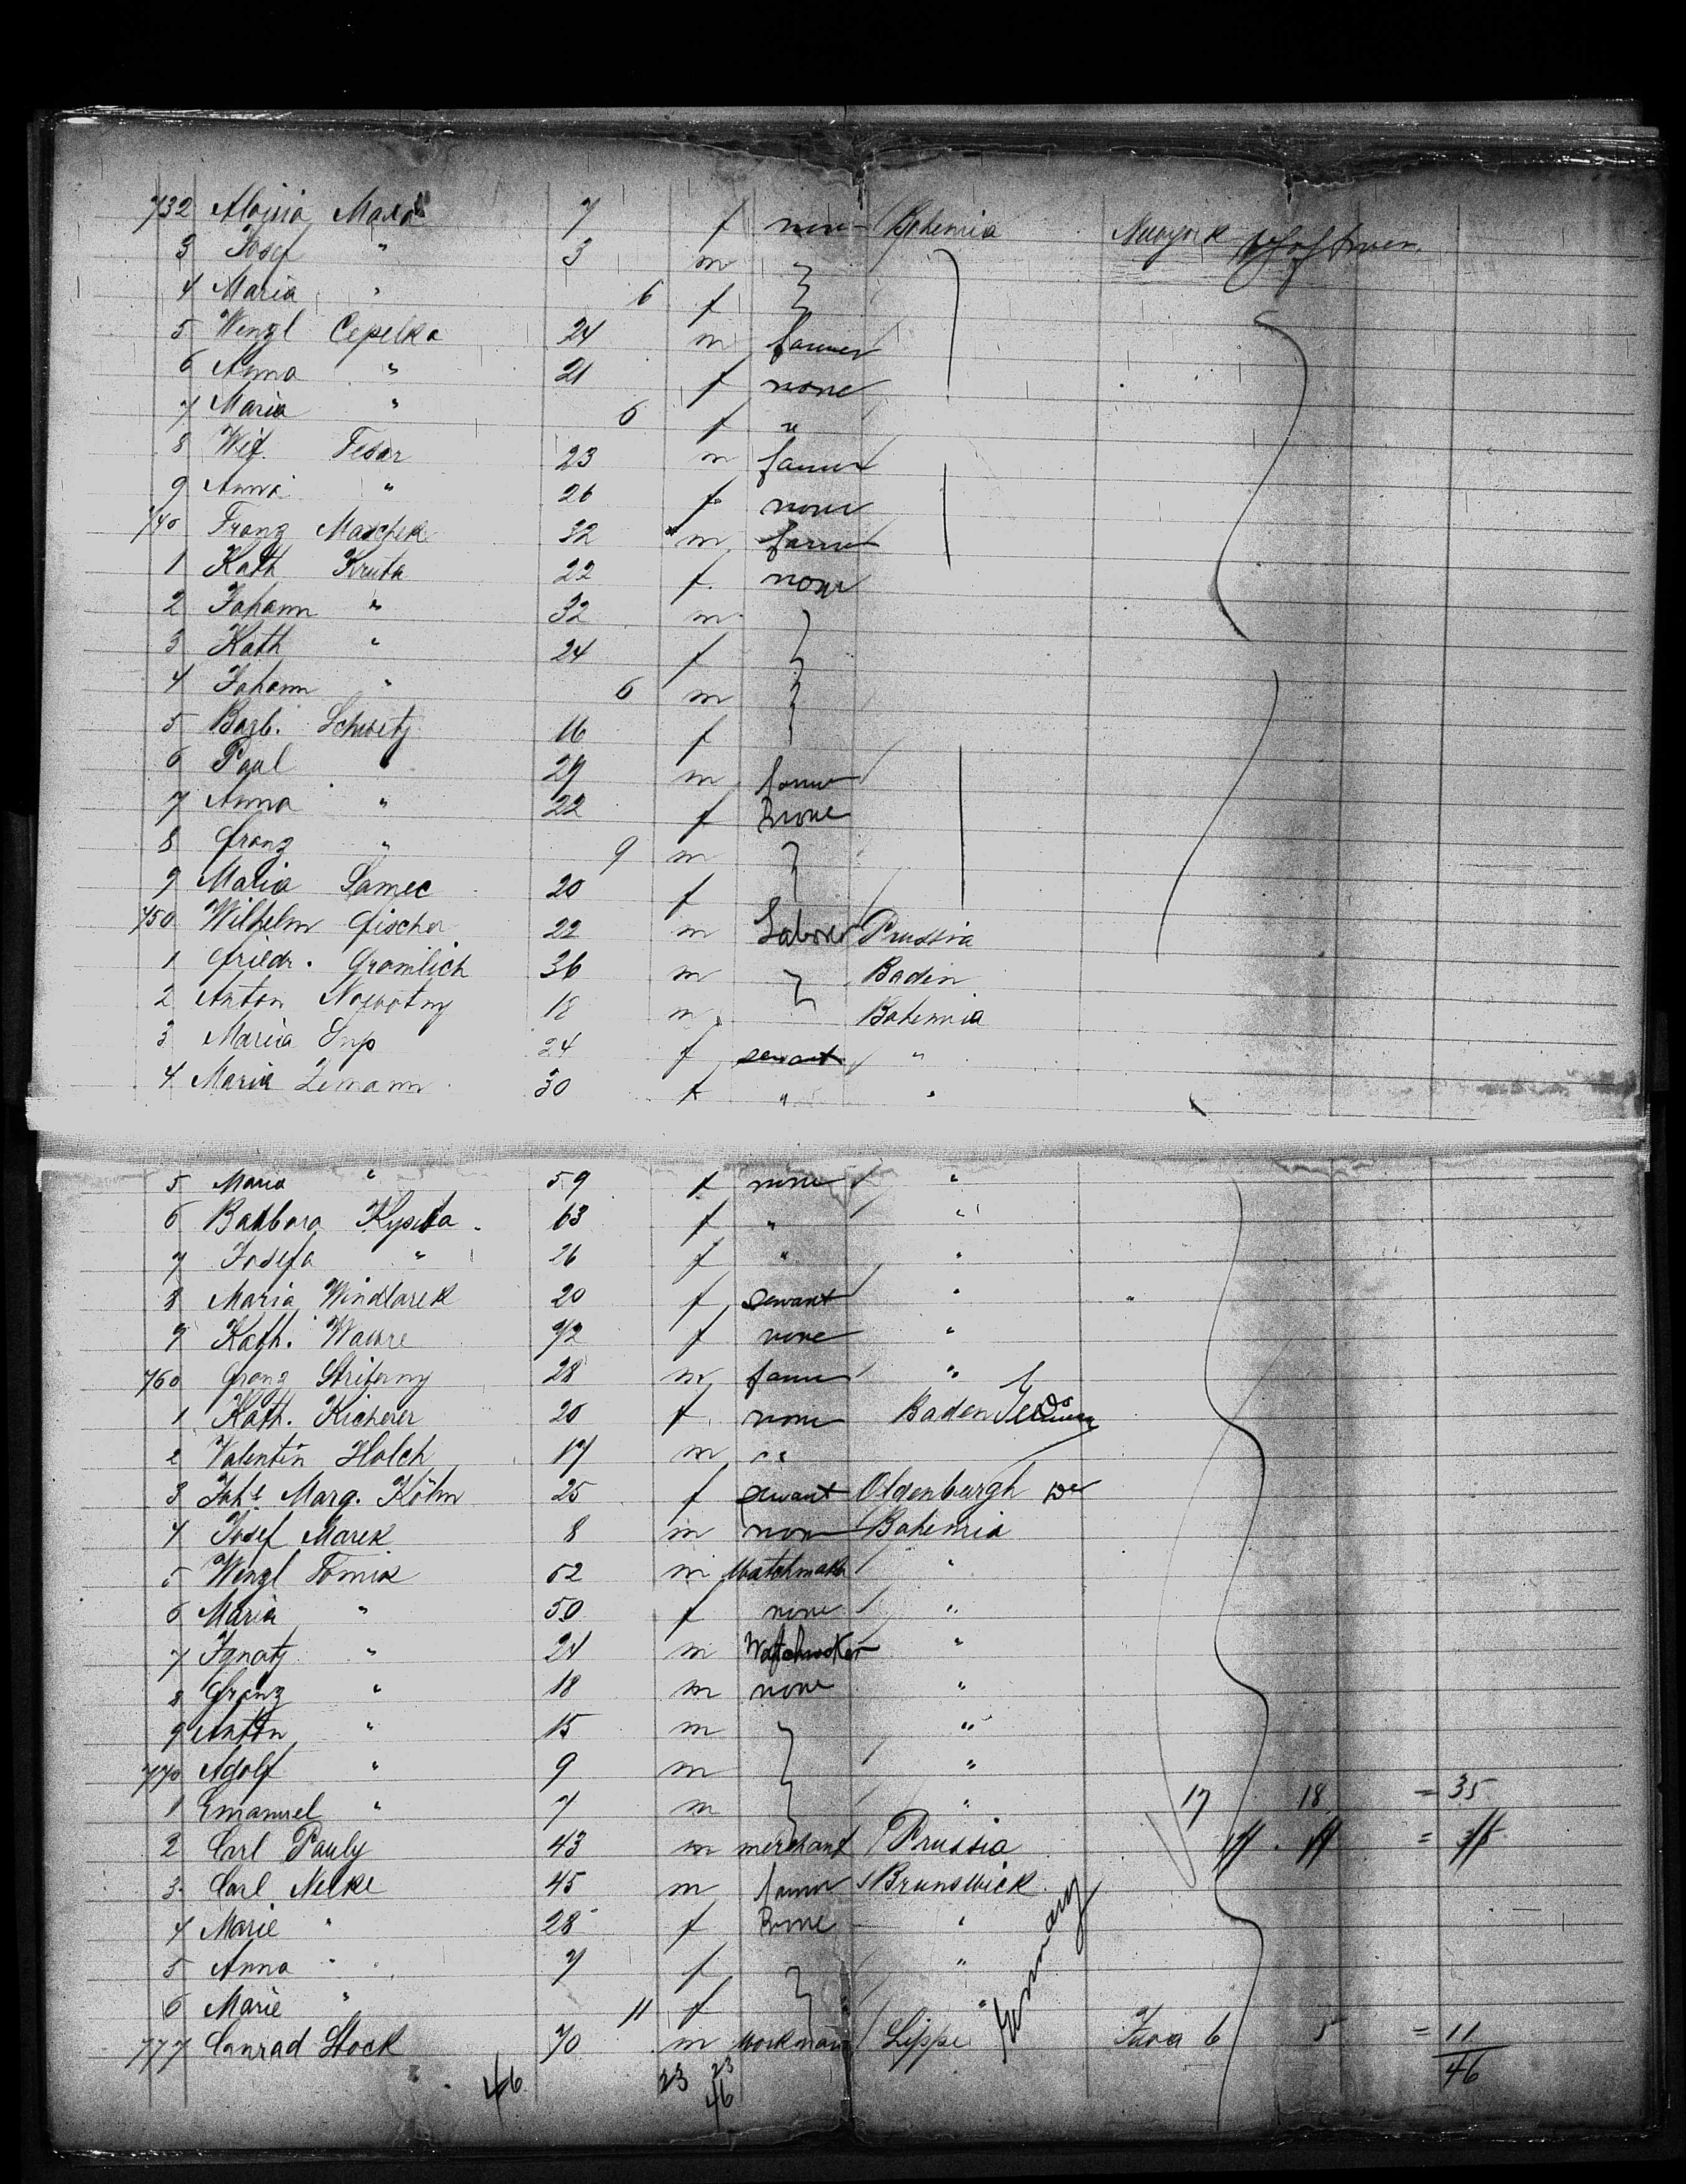 732 Aloisia Mara 7 f none Bohemia Newyork
3 Josef " 3 m
4 Maria " 6 f
5 Wenzl Cepelka 24 m farmer
6 Anna " 21 f none
7 Maria " 6 f "
8 Fesar 23 m farmer
9 Anna " 26 f none
740 Franz Maschek 32 m farmer
1 Kath Kruta 22 f none
2 Johann " 32 m
3 Kath " 24 f
4 Johann " 6 m
5 Barb. Schwetz 16 f
6 Paul " 29 m farmer
7 Anna " 22 f none
8 Franz " 9 m
9 Maria Samec 20 f
750 Wilhelm Fischer 22 m Laborer Prussia
1 Friedr. Gramlich 36 m Baden
2 Anton Nowotny 18 m Bohemia
3 Maria 24 f servant "
4 Maria Zemann 30 f " "
5 Maria " 59 f none "
6 Barbara 63 f " "
7 Josefa " 26 f " "
8 Maria Windlarek 20 f servant " "
9 Kath. Wawre f none "
760 Franz Striberny 28 m farmer "
1 Kath. Kicherer 20 f none Baden
2 Valentin Holch 17 m "
3 Johs Marg. Köhn 25 f servant Oldenburgh
4 Josef Marek 8 m none Bohemia
5 Wenzl Tomis 52 m Watchmaker "
6 Maria " 50 f none "
7 Ignatz " 24 m Watchmaker "
8 Franz " 18 m none "
9 Anton " 15 m "
770 Adolf " 9 m "
1 Emanuel " 7 m " 17 18 = 35
2 Carl Pauly 43 m merchant Prussia =
3 Carl Nelke 45 m farmer Brunswick
4 Marie " 28 f none "
5 Anna " 7 f "
6 Marie " 11 f "
Germany
777 Conrad Stock 70 m Workman Lippe Iowa 6 5 = 11
46 23 23 46
46